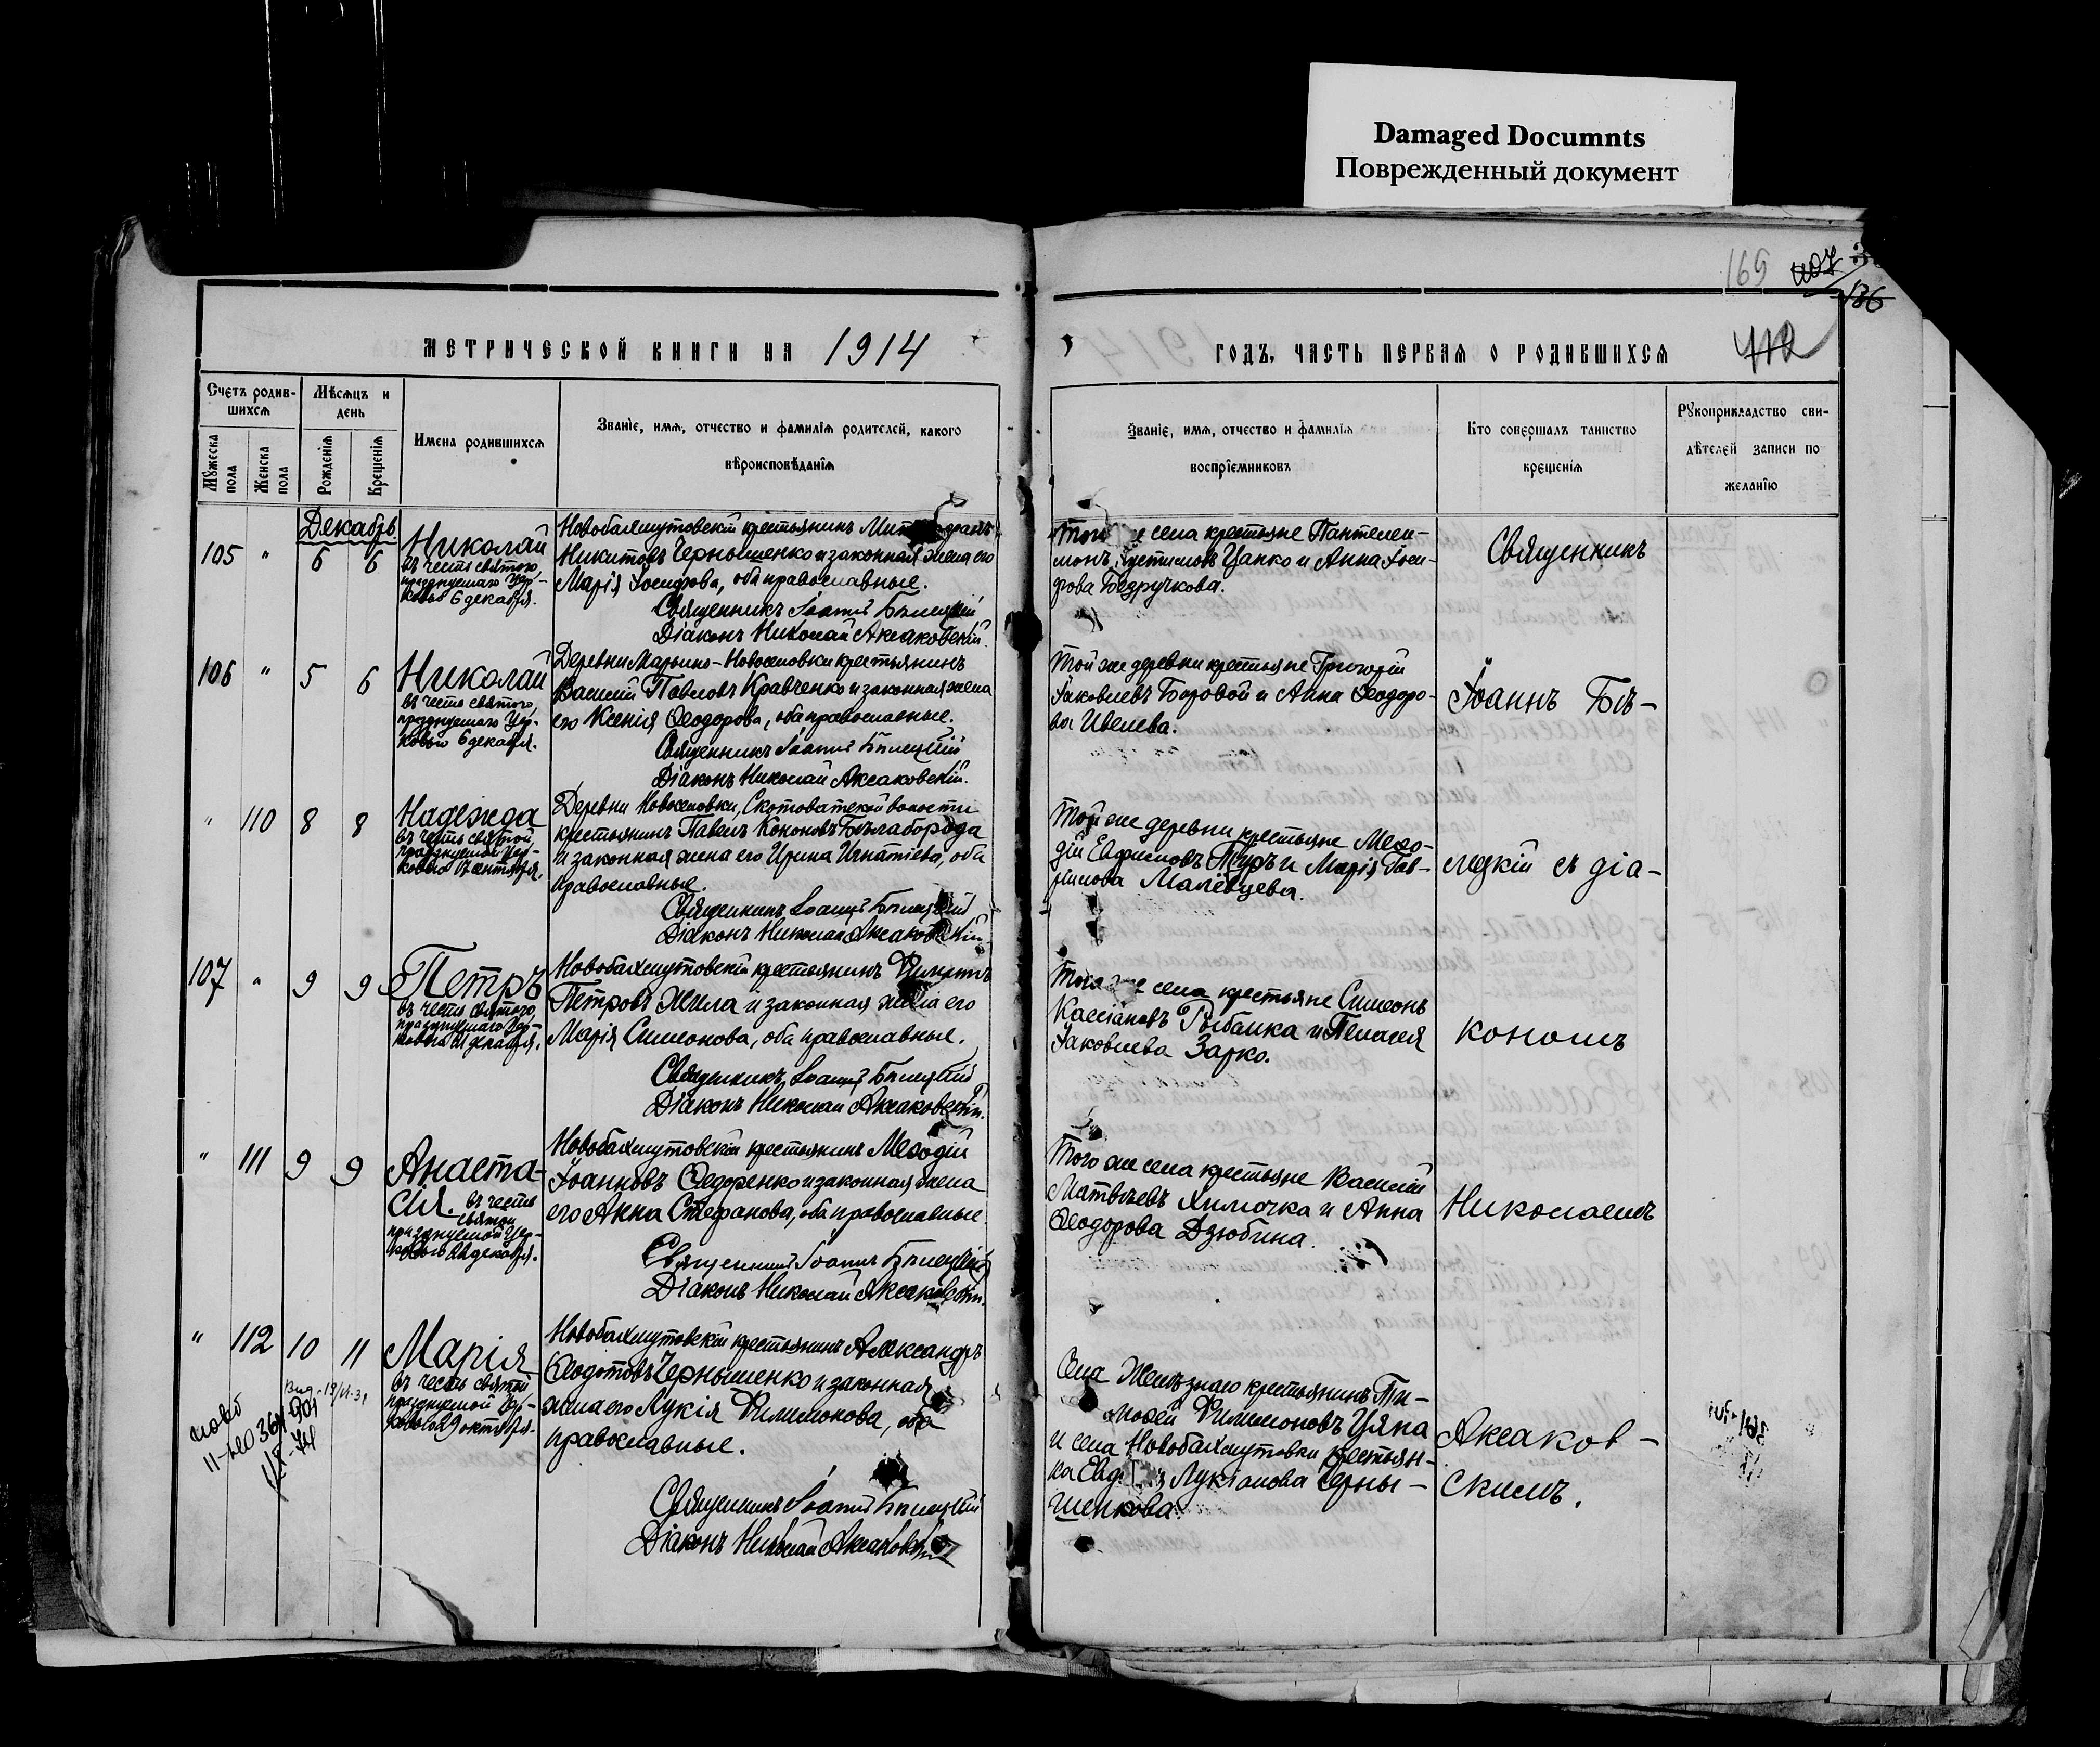 Damaged Documnts
Поврежденный документ
169
136
МЕТРИЧЕСКОЙ КНИГИ НА 1914
ГОДЪ, ЧАСТЬ ПЕРВАЯ О РОДИВШИХСЯ
Счетъ родив-
шихся
Мѣсяцъ и
день
Мужеска
пола
Женска
пола
Рожденія
Крещенія
Имена родившихся
Званіе, имя, отчество и фамилія родителей, какого
вѣроисповѣданія
Званіе, имя, отчество и фамилія
воспріемниковъ
Кто совершалъ таинство
крещенія
Рукоприкладство сви-
дѣтелей записи по
желанію
Декабрь
105 " 6 6
Николай
въ честь святого,
празднуемаго Цер-
ковью 6 декабря.
Новобахмутовскій крестьянинъ
Никитовъ Чернышенко и законная жена его
Марія Іосифова, оба православные.
Священникъ Іоаннъ Бѣлецкій
Діаконъ Николай Аксаковскій.
села крестьяне Пантелей-
монъ Цапко и Анна Іоси-
фова Безручкова.
106 " 5 6
Николай
въ честь святого,
празднуемаго Цер-
ковью 6 декабря.
Деревни Марьино-Новоселовки крестьянинъ
Василій Павловъ Кравченко и законная жена
его Ксенія Ѳеодорова, оба православные.
Священникъ Іоаннъ Бѣлецкій
Діаконъ Николай Аксаковскій.
Той же деревни крестьяне Григорій
Іаковлевъ Боровой и Анна Ѳеодоро-
ва Ивлева.
" 110 8 8
Надежда
въ честь святой,
празднуемой Цер-
ковью 17 сентября.
Деревни Новоселовки, Скотоватской волости
крестьянинъ Павелъ Кононовъ Бѣлаборода
и законная жена его Ирина Игнатіева, оба
православные.
Священникъ Іоаннъ Бѣлецкій
Діаконъ Николай Аксаковскій.
Той же деревни крестьяне Меѳо-
дій Ефимовъ Туръ и Марія Гав-
риилова Малевцева.
107 " 9 9
Петръ
въ честь святого,
празднуемаго Цер-
ковью 21 декабря.
Новобахмутовскій крестьянинъ
Петровъ Жила и законная жена его
Марія Симеонова, оба православные.
Священникъ Іоаннъ Бѣлецкій
Діаконъ Николай Аксаковскій.
Того же села крестьяне Симеонъ
Кассіановъ Рыбалка и Пелагея
Іаковлева Зарко.
" 111 9 9
Анаста-
сія. въ честь
святой
празднуемой Цер-
ковью 22 декабря.
Новобахмутовскій крестьянинъ Меѳодій
Іоанновъ Ѳедоренко и законная жена
его Анна Стефанова, оба православные.
Священникъ Іоаннъ Бѣлецкій
Діаконъ Николай Аксаковскій.
Того же села крестьяне Василій
Матвѣевъ Химочка и Анна
Ѳеодорова Дзюбина.
" 112 10 11
Марія
въ честь святой
празднуемой Цер-
ковью 29 октября.
Новобахмутовскій крестьянинъ Александръ
Ѳеодотовъ Чернышенко и законная
жена его Лукія Филимонова, оба
православные.
Священникъ Іоаннъ Бѣлецкій
Діаконъ Николай Аксаковскій
Села Желѣзнаго крестьянинъ Ти-
моѳей Филимоновъ Цяпа
и села Новобахмутовки крестьян-
ка Лукіанова Черны-
шенкова.
Священникъ
Іоаннъ Бѣ-
лецкій съ діа-
кономъ
Николаемъ
Аксаков-
скимъ.